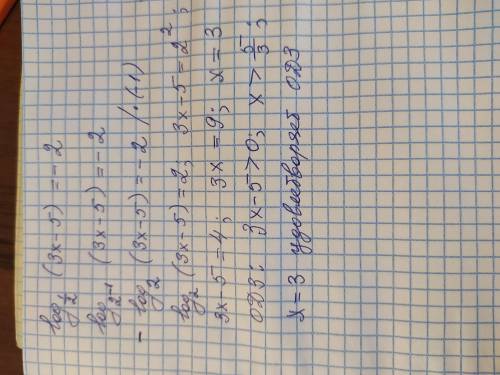 log_{1/2} (3x-5) = -2
log_{2^{-1}} (3x-5) = -2
- log_2 (3x-5) = -2 / · (-1)
log_2 (3x-5) = 2; 3x-5 = 2^2;
3x-5 = 4; 3x = 9; x = 3
ОДЗ: 3x-5>0; x > 5/3;
x = 3 удовлетворяет ОДЗ